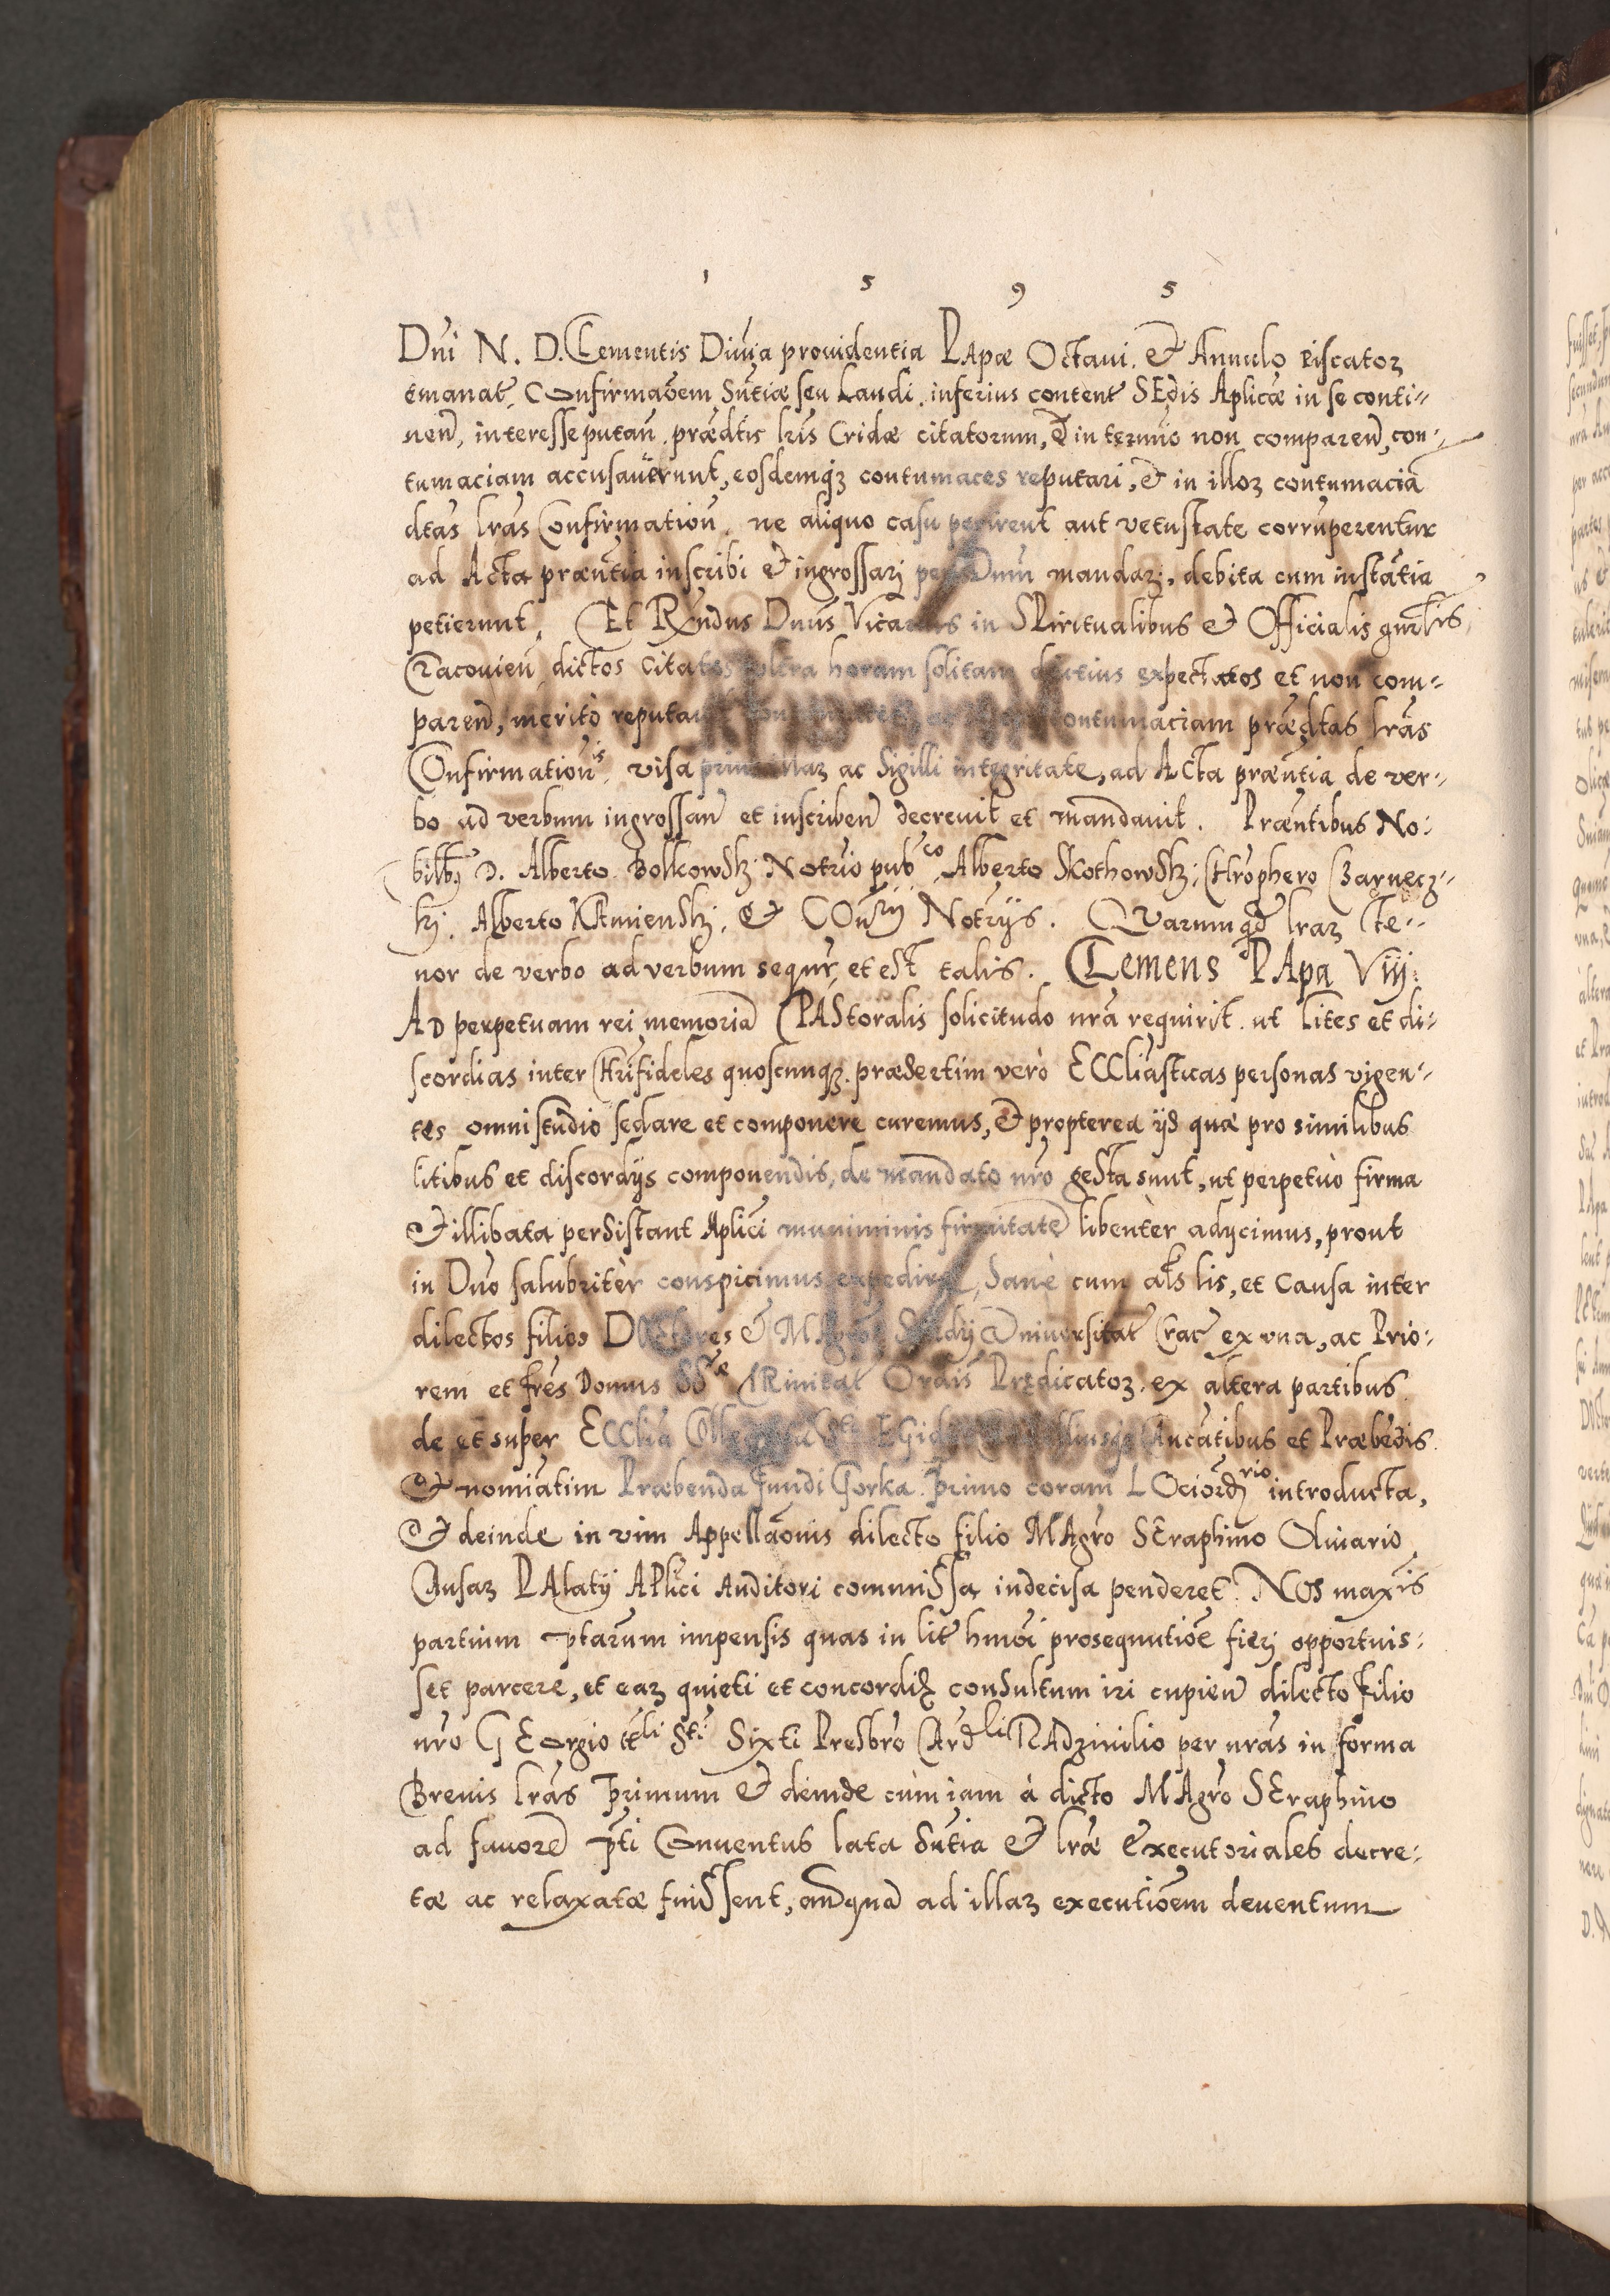 1 5 9 5
Dni N. D. Clementis Diuīa prouidentia PApæ Octaui. et Annulo Piscatoꝝ
emanat, Confirmaōem Sntiæ seu Laudi inferius content SEdis Aplicæ in se conti⸗
nen, interesse putan. prædtis lris Cridæ citatorum, et in termio non comparen, con⸗
tumaciam accusauerunt, eosdemqꝫ contumaces reputari, et in illoꝝ contumaciā
dtas lras Confirmation, ne aliquo casu perirent aut vetustate corrūperentur
ad Acta præntia inscribi et ingrossarj per Dnm mandarj, debita cum instātia
petierunt. Et Rndus Dnus Vicarius in SPiritualibus et Officialis gnrlis
Cracouien dictos Citatos vltra horam solitam diutius expectatos et non com⸗
paren, meritò contumaciam prædtas lras
Confirmationis, visa prius illaꝝ ac Sigilli integritate, ad Acta præntia de ver⸗
bo ad verbum ingrossan et inscriben decreuit et mandauit. Præntibus No⸗
bilbꝫ D. Alberto Bolkowskj Notrio pubco, Alberto Skothowskj, Chrophero Czarnecz⸗
kj. Alberto KAmienskj, et COnrij Notrijs. QVarum qd lraꝝ te⸗
nor de verbo ad verbum sequr, et est talis. CLemens PApa Viij
AD perpetuam rei memoriā PAStoralis solicitudo nra requirit ut lites et di⸗
scordias inter Chrifideles quoscunqꝫ præsertim verò ECCliasticas personas vigen⸗
tes omni studio sedare et componere curemus, et propterea ijs quæ pro similibus
litibus et discordijs componendis, de mandato nro gesta sunt, ut perpetuò firma
et illibata persistant Aplici muniminis firmitatē libentèr adijcimus, prout
in Dno salubritèr conspicimus expedire, Sanè cum als lis, et Causa inter
dilectos filios DOctores et MAgros Studij Vniuersitat Crac ex vna, ac Prio⸗
rem et frēs Domus SSæ TRinitat Ordis Prædicatoꝝ ex altera partibus
de et super ECClia Collegiata Sti EGidij illiusqꝫ VAncātibus et Præbēdis
et nomiātim Præbenda fundi Gorka. Primo coram LOciordrio introducta,
et deinde in vim Appellaōnis dilecto filio MAgro SEraphino Oliuario
CAusaꝝ PAlatij APlici Auditori commissa indecisa penderet. NOs maxīs
partium ptarum impensis quas in lit hmoi prosequutiōe fierj opportuis⸗
set parcere, et eaꝝ quieti et concordiæ consultum iri cupien dilecto filio
nro GEorgio ttli Sti Sixti Presbro CArdli RAdziuilio per nras in forma
Breuis lras Primum et deinde cùm iam à dicto MAgro SEraphino
ad fauorē pti Conuentus lata Sntia et lræ executoriales decre⸗
tæ ac relaxatæ fuissent, anqua ad illaꝝ executiōem deuentum